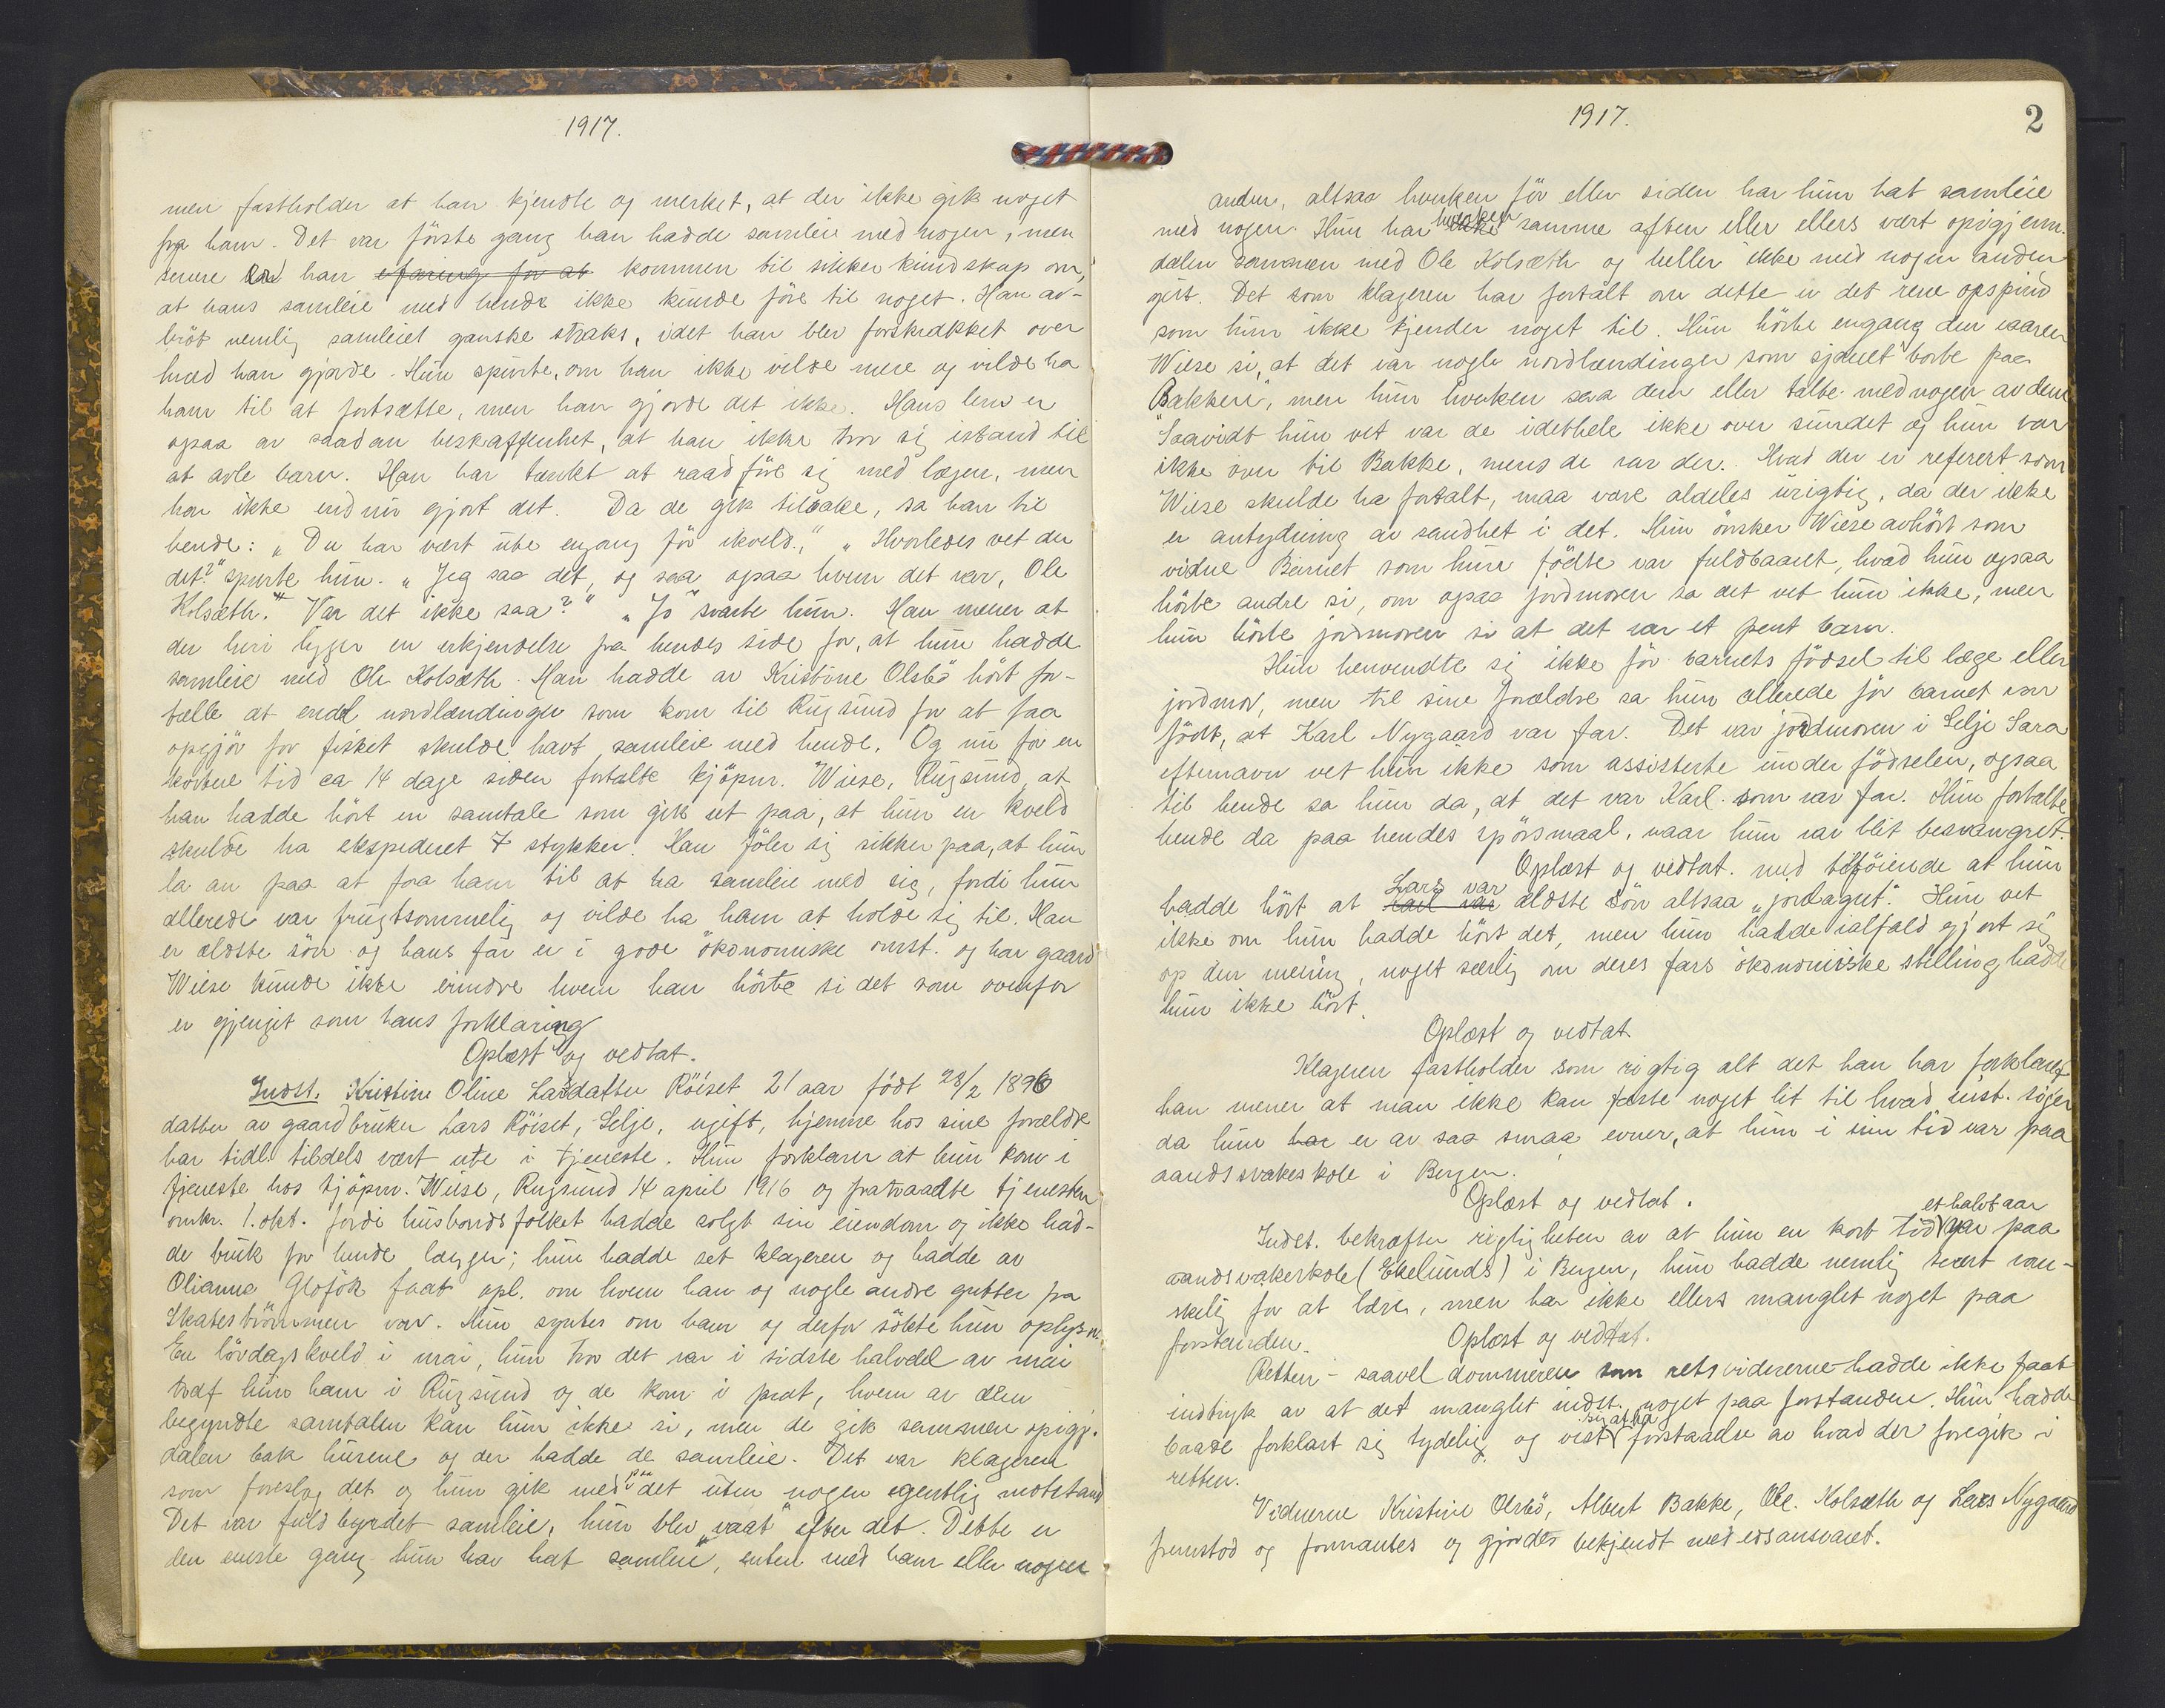 1917.
men fastholder at han kjendte og merket, at der ikke gik noget
fra ham. Det var första gang han hadde samleie med nogen, men
senere er han efaring for at kommen til sikker kundskap om,
at hans samleie med hende ikke kunde före til noget. Han av-
bröt nemlig samleiet ganske straks, idet han blev forskrækket over
hvad han gjorde. Hun spurte, om han ikke vilde mere og vilde ha
ham til at fortsætte, men han gjorde det ikke. Hans lem er
ogsaa av saadan beskaffenhet, at han ikke tror sig istand til
at avle barn. Han har tænkt at raadföre sig med lægen, men
har ikke endnu gjort det. Da de gik tilbake, sa han til
hende: „Du har vært ute engang för ikveld." „Hvorledes vet du
det?" spurte hun. „Jeg saa det, og saa ogsaa hvem det var, Ole
Kolsæth." Var det ikke saa?" „Jo" svarte hun. Han mener at
der heri ligger en erkjendelse fra hendes side for, at hun hadde
samleie med Ole Kolsæth. Han hadde av Kristine Olsbö hört for-
tælle at endel nordlændinger som kom til Rugsund for at faa
opgjör for fisket skulde havt samleie med hende. Og nu for en
kortere tid ca 14 dage siden fortalte kjöpm. Wiese, Rugsund, at
han hadde hört en samtale som gik ut paa, at hun en kveld
skulde ha ekspederet 7 stykker. Han föler sig sikker paa, at hun
la an paa at faa ham til at ha samleie med sig, fordi hun
allerede var frugtsommelig og vilde ha ham at holde sig til. Han
er ældste sön og hans far er i gode ökonomiske omst. og har gaard
Wiese kunde ikke erindre hvem han hörte si det som ovenfor
er gjengit som hans forklaring
Oplæst og vedtat.
Indst. Kristine Oline Larsdatter Röiset 21 aar födt 28/2 1896
datter av gaardbruker Lars Röiset, Selje, ugift, hjemme hos sine forældre
har tidl. tildels vært ute i tjeneste. Hun forklarer at hun kom i
tjeneste hos kjöpm. Wiese, Rugsund 14 april 1916 og fratraadte tjenesten
omkr. 1. okt. fordi husbondsfolket hadde solgt sin eiendom og ikke had-
de bruk for hende længer; hun hadde set klageren og hadde av
Olianna Glofök faat opl. om hvem han og nogle andre gutter fra
Skatestrømmen var. Hun syntes om ham og derfor sökte hun oplysn.
En lördagskveld i mai, hun tror det var i sidste halvdel av mai
traf hun ham i Rugsund og de kom i prat, hvem av dem
begyndte samtalen kan hun ikke si, men de gik sammen opigj.
dalen bak husene og der hadde de samleie. Det var klageren
som foreslog det og hun gik med paa det uten nogen egentlig motstand
Det var fuldbyrdet samleie, hun blev „vaat" efter det. Dette er
den eneste gang hun har hat samleie, enten med ham eller nogen
1917.
2
anden, altsaa hverken för eller siden har hun hat samleie
med nogen. Hun har hverken samme aften eller ellers vært opigjenn.
dalen sammen med Ole Kolsæth og heller ikke med nogen anden
gut. Det som klageren har fortalt om dette er det rene opspind
som hun ikke kjender noget til. Hun hörte engang
Wiese si, at det var nogle nordlændinger som sjauet borte paa
Bakken", men hun hverken saa dem eller talte med nogen av dem
Saavidt hun vet var de idethele ikke over sundet og hun var
ikke over til Bakke, mens de var der. Hvad der er referert som
Wiese skulde ha fortalt, maa være aldeles urigtig, da der ikke
er antydning av sandhet i det. Hun önsker Wiese avhört som
vidne Barnet som hun födte var fuldbaaret, hvad hun ogsaa
hörte andre si, om ogsaa jordmoren sa det vet hun ikke, men
hun hörte jordmoren si at det var et pent barn.
Hun henvendte sig ikke för barnets födsel til læge eller
jordmor, men til sine forældre sa hun allerede för barnet var
födt, at Karl Nygaard var far. Det var jordmoren i Selje Sara
efternavn vet hun ikke som assisterte under födselen, ogsaa
til hende sa hun da, at det var Karl som var far. Hun fortalte
hende da paa hendes spörsmaal, naar hun var blit besvangret.
Oplæst og vedtat. med tilföiende at hun
hadde hört at Karl var Lars var ældste sön altsaa „jordagut". Hun vet
ikke om hun hadde hört det, men hun hadde ialfald gjort sig
op den mening, noget særlig om deres fars ökonomiske stilling hadde
hun ikke hört.
Oplæst og vedtat
Klageren fastholder som rigtig alt det han har forklaret
han mener at man ikke kan fæste noget lit til hvad indst. siger
da hun har er av saa smaa evner, at hun i sin tid var paa
aandssvakeskole i Bergen.
Oplæst og vedtat.
Indst. bekræfter rigtigheten av at hun en kort tid et halvt aar var paa
aandsvakeskole (Ekelunds) i Bergen, hun hadde nemlig svært van-
skelig for at lære, men har ikke ellers manglet noget paa
forstanden. Oplæst og vedtat.
Retten - saavel dommeren som retsvidnerne hadde ikke faat
indtryk av at det manglet indst. noget paa forstanden. Hun hadde
baade forklart sig tydelig og vist sig at ha forstaaelse av hvad der foregik i
retten.
Vidnerne Kristine Olsbö, Albert Bakke, Ole Kolsæth og Lars Nygaard
fremstod og formantes og gjordes bekjendt med edsansvaret.